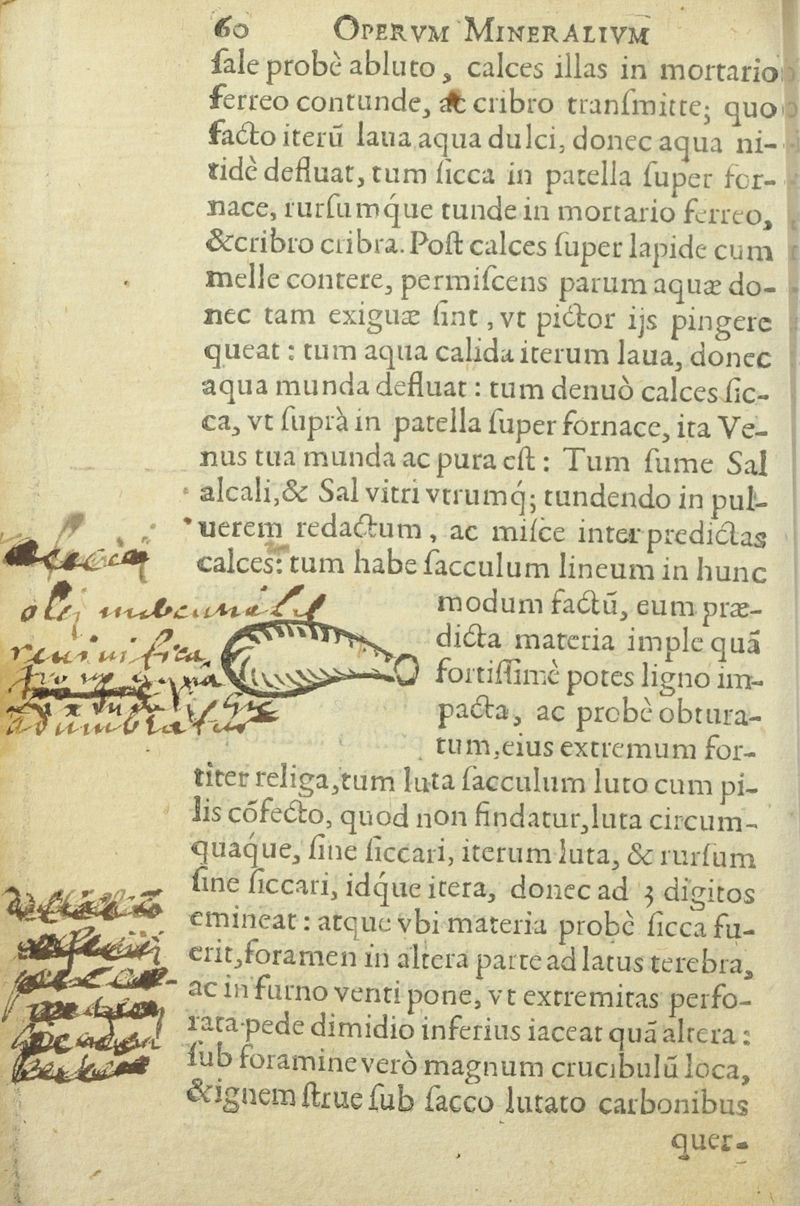 60 OPERVM MINERALIVM
ſale probè abluto, calces illas in mortario
ferreo contunde, ac cribro tranſmitte; quo
facto iterũ laua aqua dulci, donec aqua ni-
tidè defluat, tum ſicca in patella ſuper for-
nace, rurſumq́ue tunde in mortario ferreo,
&cribro cribra. Poſt calces ſuper lapide cum
melle contere, permiſcens parum aquæ do-
nec tam exiguæ ſint, vt pictor ijs pingere
queat: tum aqua calida iterum laua, donec
aqua munda defluat: tum denuò calces ſic-
ca, vt ſuprà in patella ſuper fornace, ita Ve-
nus tua munda ac pura eſt: Tum ſume Sal
alcali, & Sal vitri vtrumq́; tundendo in pul-
uerem redactum, ac miſce inter predictas
calces: tum habe ſacculum lineum in hunc
modum factũ, eum præ-
dicta materia imple quã
fortiſſimè potes ligno im-
pacta, ac probè obtura-
tum, eius extremum for-
titer religa, tum luta ſacculum luto cum pi-
lis cõfecto, quod non findatur, luta circum-
quaque, ſine ſiccari, iterum luta, & rurſum
ſine ſiccari, idq́ue itera, donec ad 3 digitos
emineat: atque vbi materia probè ſicca fu-
erit, foramen in altera parte ad latus terebra,
ac in furno venti pone, vt extremitas perfo-
rata pede dimidio inferius iaceat quã altera:
ſub foramine verò magnum crucibulũ loca,
& ignem ſtrue ſub ſacco lutato carbonibus
quer-
adumbratur